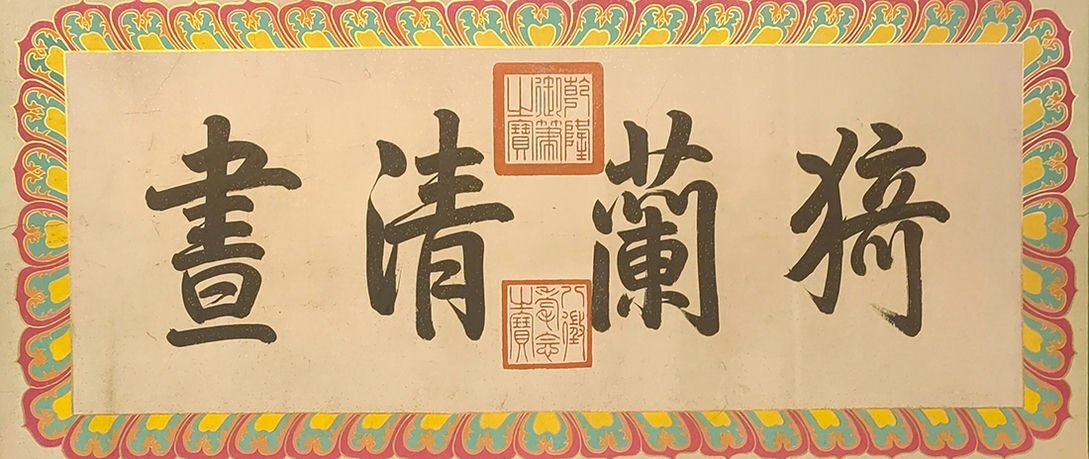 猗蘭清晝
乾隆
御筆
之寶
八徵
耄念
之寶